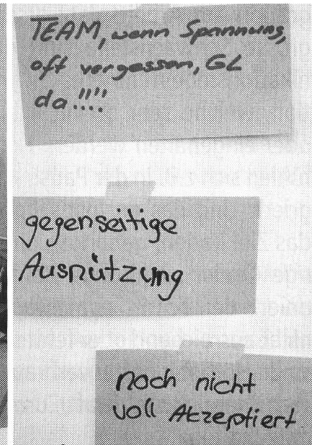 TEAM, wenn Spannung,
oft vergessen, GL
da!!!!
gegenseitige
Ausnützung
noch nicht
voll Akzeptiert